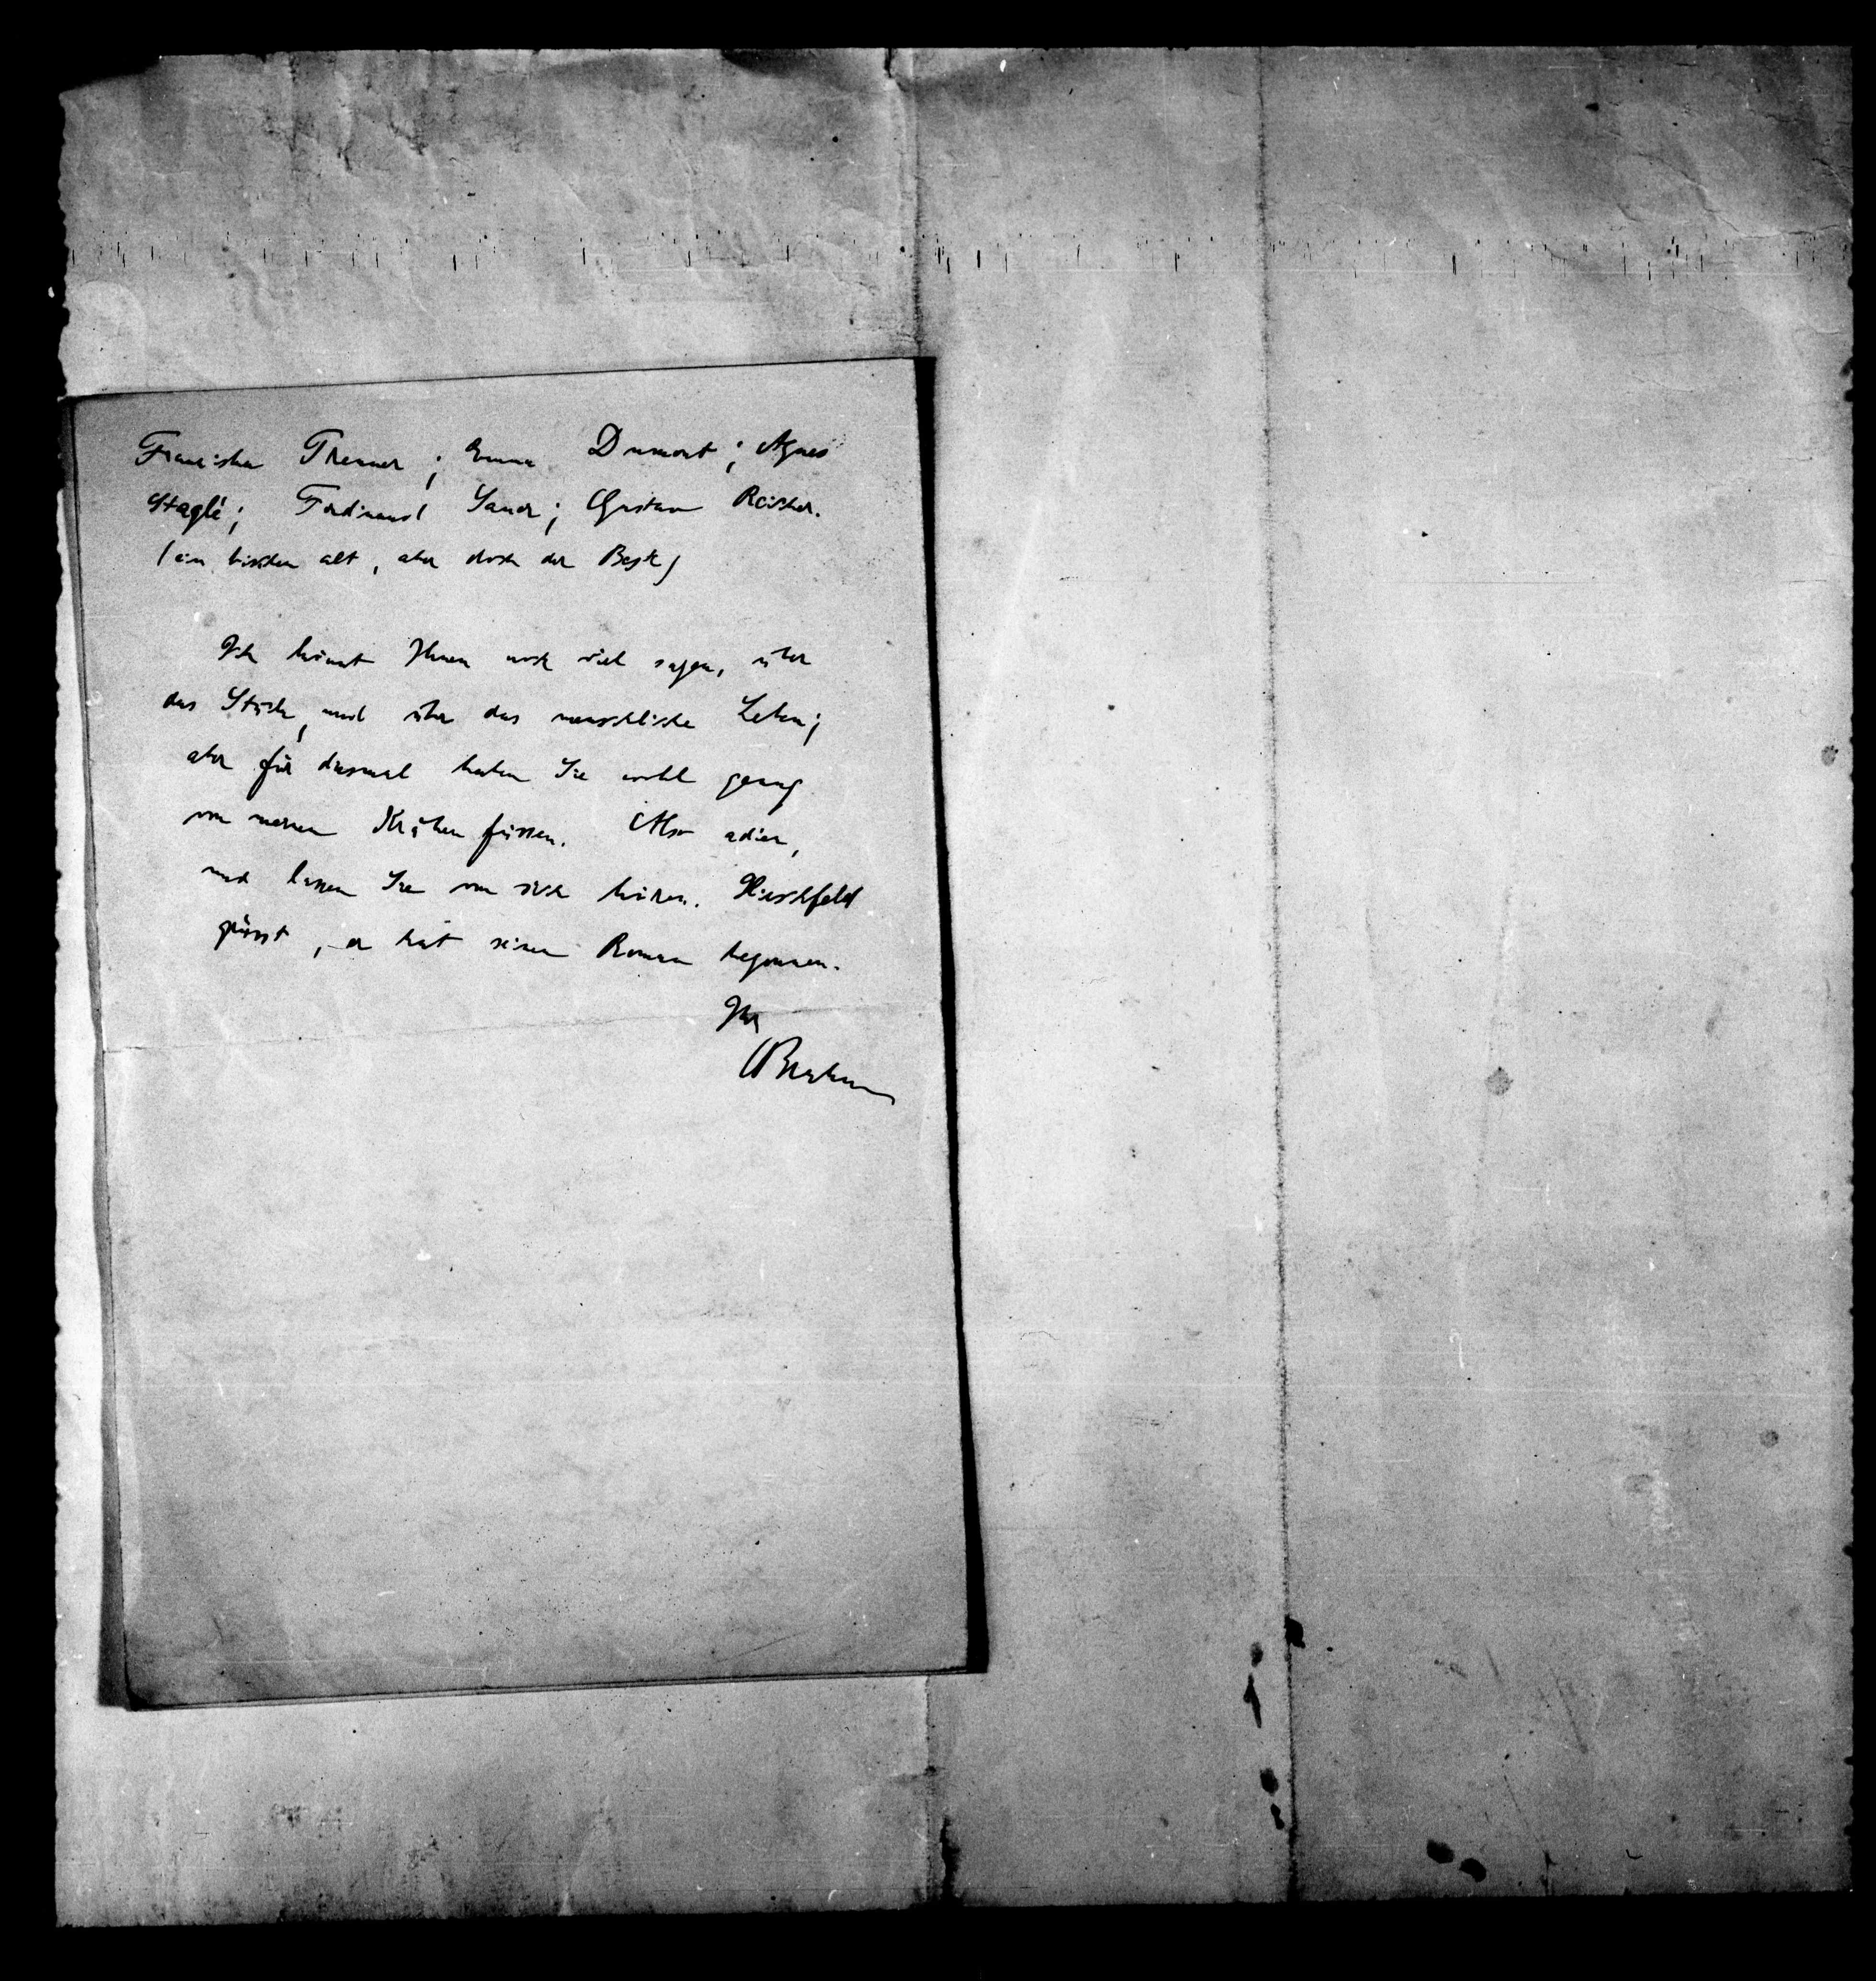 Franziska Theumer; Emma Dumont; Agnes
Staglé; Ferdinand Sauer; Gustav Reicher.
(ein bischen alt, aber doch der Beste)
Ich könnt Ihnen noch viel sagen, über
das Stück, und über das menschliche Leben;
aber für diesmal haben Sie wohl genug
von meinen Krähenfüssen. Also adieu,
und lassen Sie von sich hören. Hirschfeld
grüsst, er hat seinen Roman begonnen.
Ihr
OBrahm